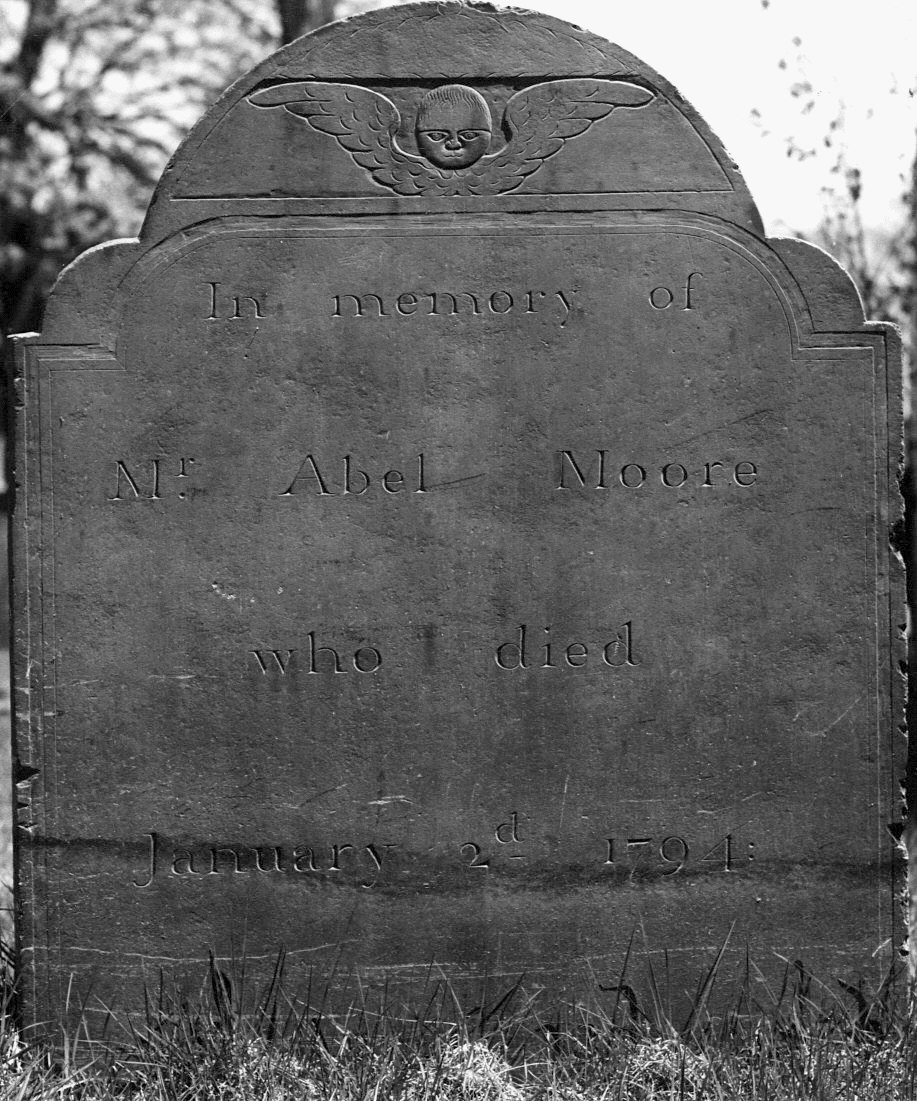 In memory of
Mr. Abel Moore
who died
January 2d 1794: